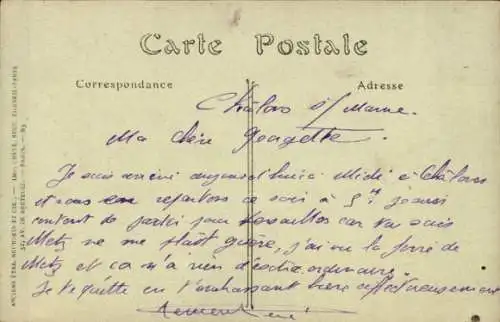 Carte Postale
Correspondance
Adresse
Châlons s/ Marne.
Ma chère Georgette
Je suis arrivé aujourd'hui à Midi à Châlons
et nous en repartons ce soir à 5 H je suis
content de partir pour Versailles car tu sais
Metz ne me plait guère, j'ai vu la foire de
Metz et ça n'a rien d'extraordinaire.
Je te quitte en t'embrassant bien affectueusement